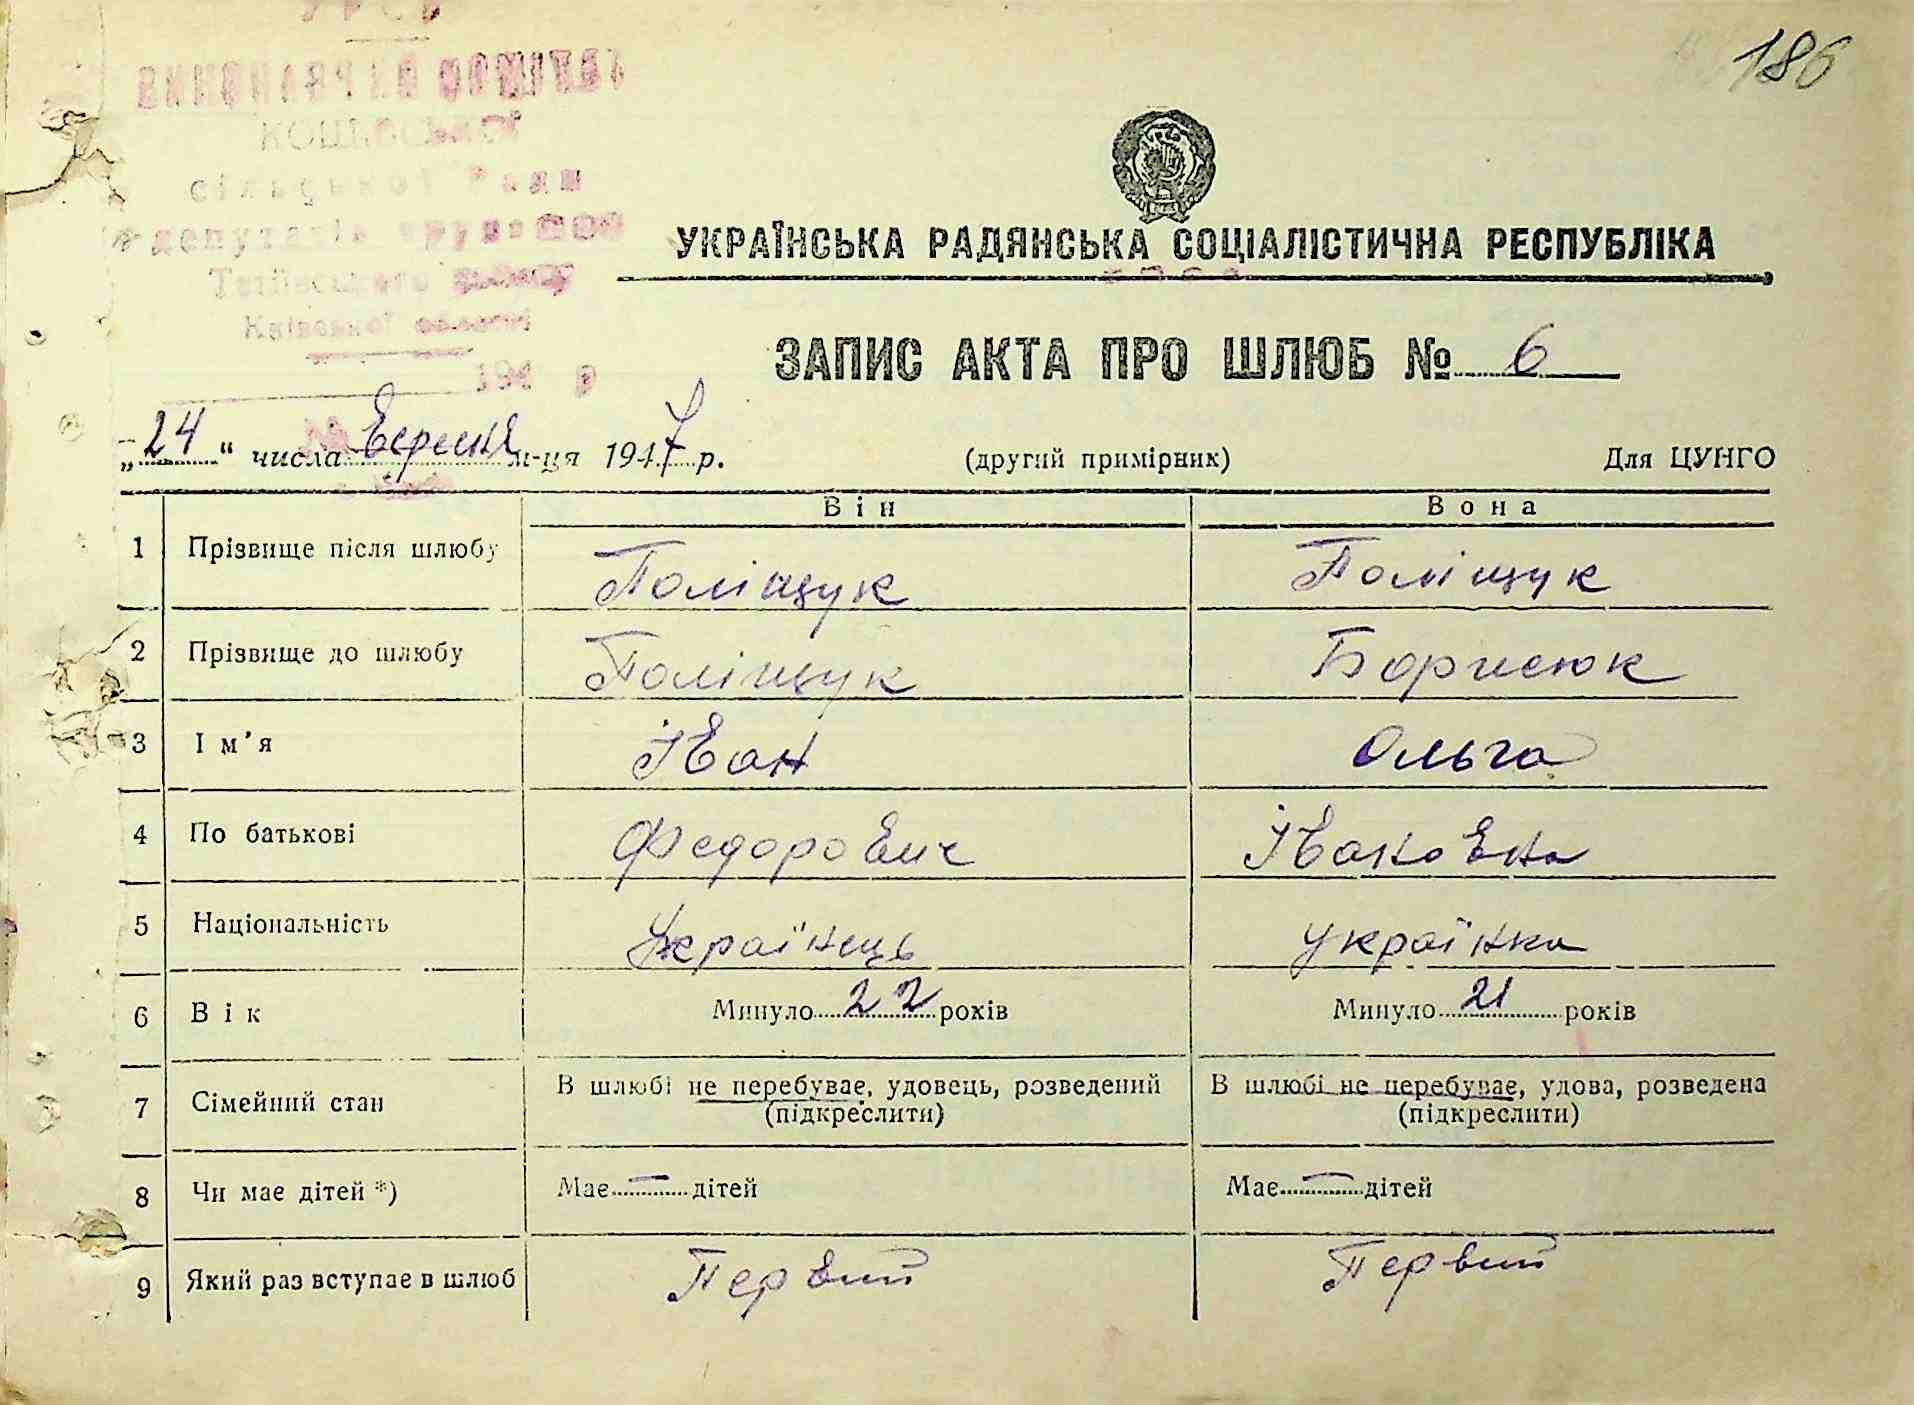 186
УРСР
ВИКОНАВЧИЙ КОМІТЕТ
сільської Ради
депутатів трудящих
Тетіївського району
Київської області
194 р
УКРАЇНСЬКА РАДЯНСЬКА СОЦІАЛІСТИЧНА РЕСПУБЛІКА
ЗАПИС АКТА ПРО ШЛЮБ № 6
„24" числа Вересня м-ця 1947 р. (другий примірник) Для ЦУНГО
Він Вона
1 Прізвище після шлюбу Поліщук Поліщук
2 Прізвище до шлюбу Поліщук Борисюк
3 Ім'я Іван Ольга
4 По батькові Федорович Івановна
5 Національність Українець Українка
6 Вік Минуло 22 років Минуло 21 років
7 Сімейний стан В шлюбі не перебуває, удовець, розведений В шлюбі не перебуває, удова, розведена
(підкреслити) (підкреслити)
8 Чи має дітей *) Має — дітей Має — дітей
9 Який раз вступає в шлюб Первий Первий